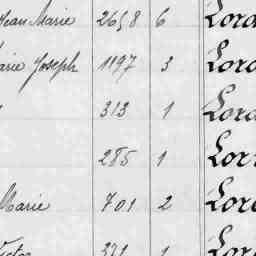 Jean Marie 2658 6 Lord
arie Joseph 1197 3 Lord
313 1 Lord
285 1 Lor
Marie 701 2 Lor
Victor 371 1 Lor